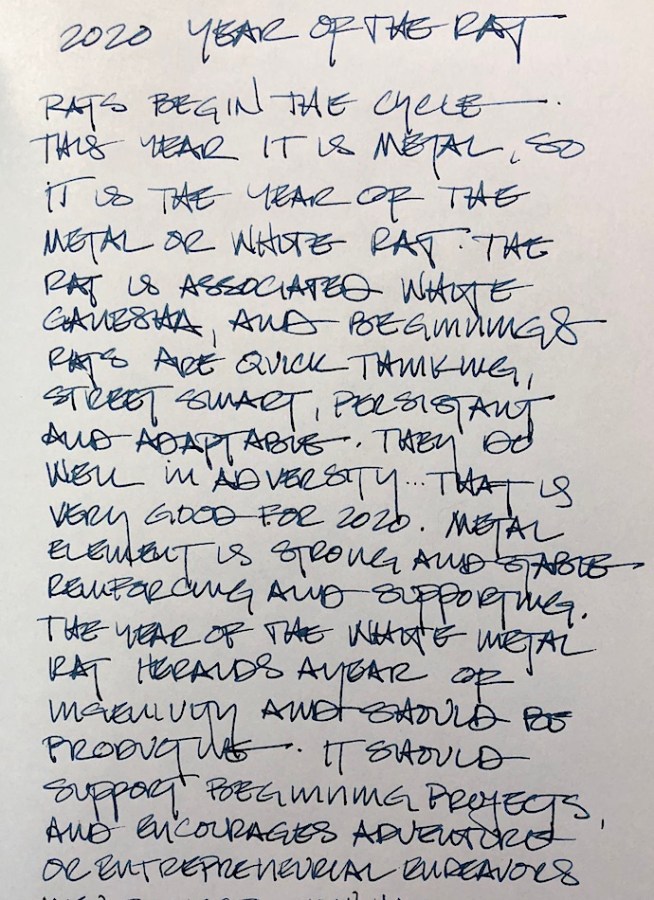 2020 YEAR OF THE RAT
RATS BEGIN THE CYCLE.
THIS YEAR IT IS METAL, SO
IT IS THE YEAR OF THE
METAL OR WHITE RAT. THE
RAT IS ASSOCIATED WHITE
GANESHA, AND BEGINNINGS
RATS ARE QUICK THINKING,
STREET SMART, PERSISTANT
AND ADAPTABLE. THEY DO
WELL IN ADVERSITY... THAT IS
VERY GOOD FOR 2020. METAL
ELEMENT IS STRONG AND STABLE
REINFORCING AND SUPPORTING.
THE YEAR OF THE WHITE METAL
RAT HERALDS A YEAR OF
INGENIUITY AND SHOULD BE
PRODUCTIVE. IT SHOULD
SUPPORT BEGINNING PROJECTS,
AND ENCOURAGES ADVENTURE
OR ENTREPRENEURIAL ENDEAVORS